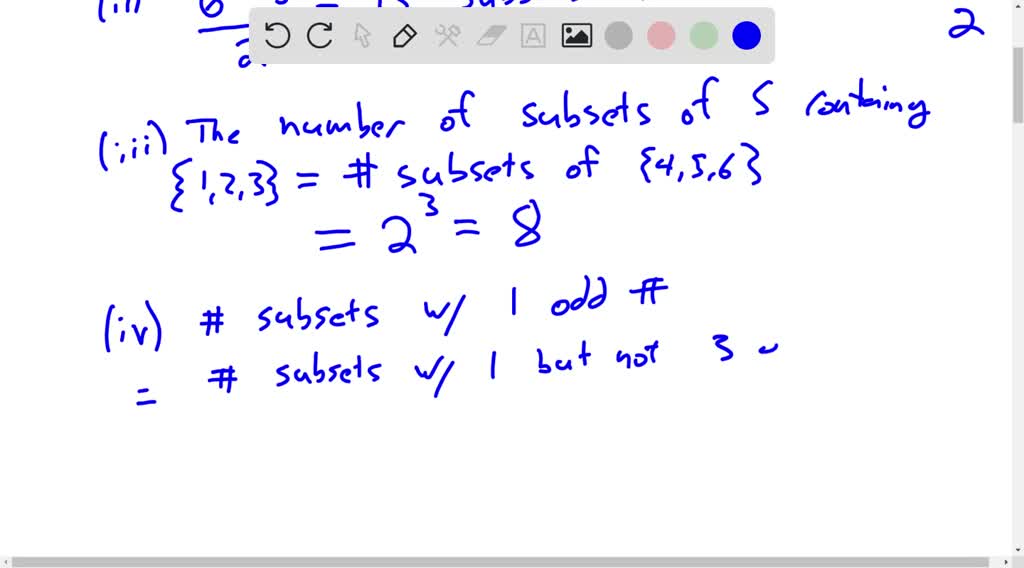 2
(iii) The number of subsets of S containing
{1,2,3} = # subsets of {4,5,6}
= 2³ = 8
(iv) # subsets w/ 1 odd #
= # subsets w/ 1 but not 3